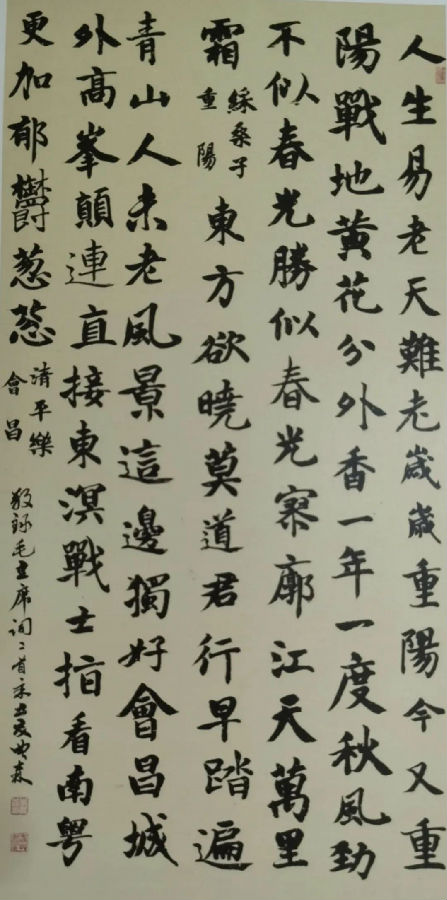 人生易老天難老歲歲重陽今又重
陽戰地黃花分外香一年一度秋風勁
不似春光勝似春光寥廓江天萬里
霜
綵桑子
重陽
東方欲曉莫道君行早踏遍
青山人未老風景這邊獨好會昌城
外高峯顛連直接東溟戰士指看南粵
更加郁鬱葱葱
清平樂
會昌
敬録毛主席词二首